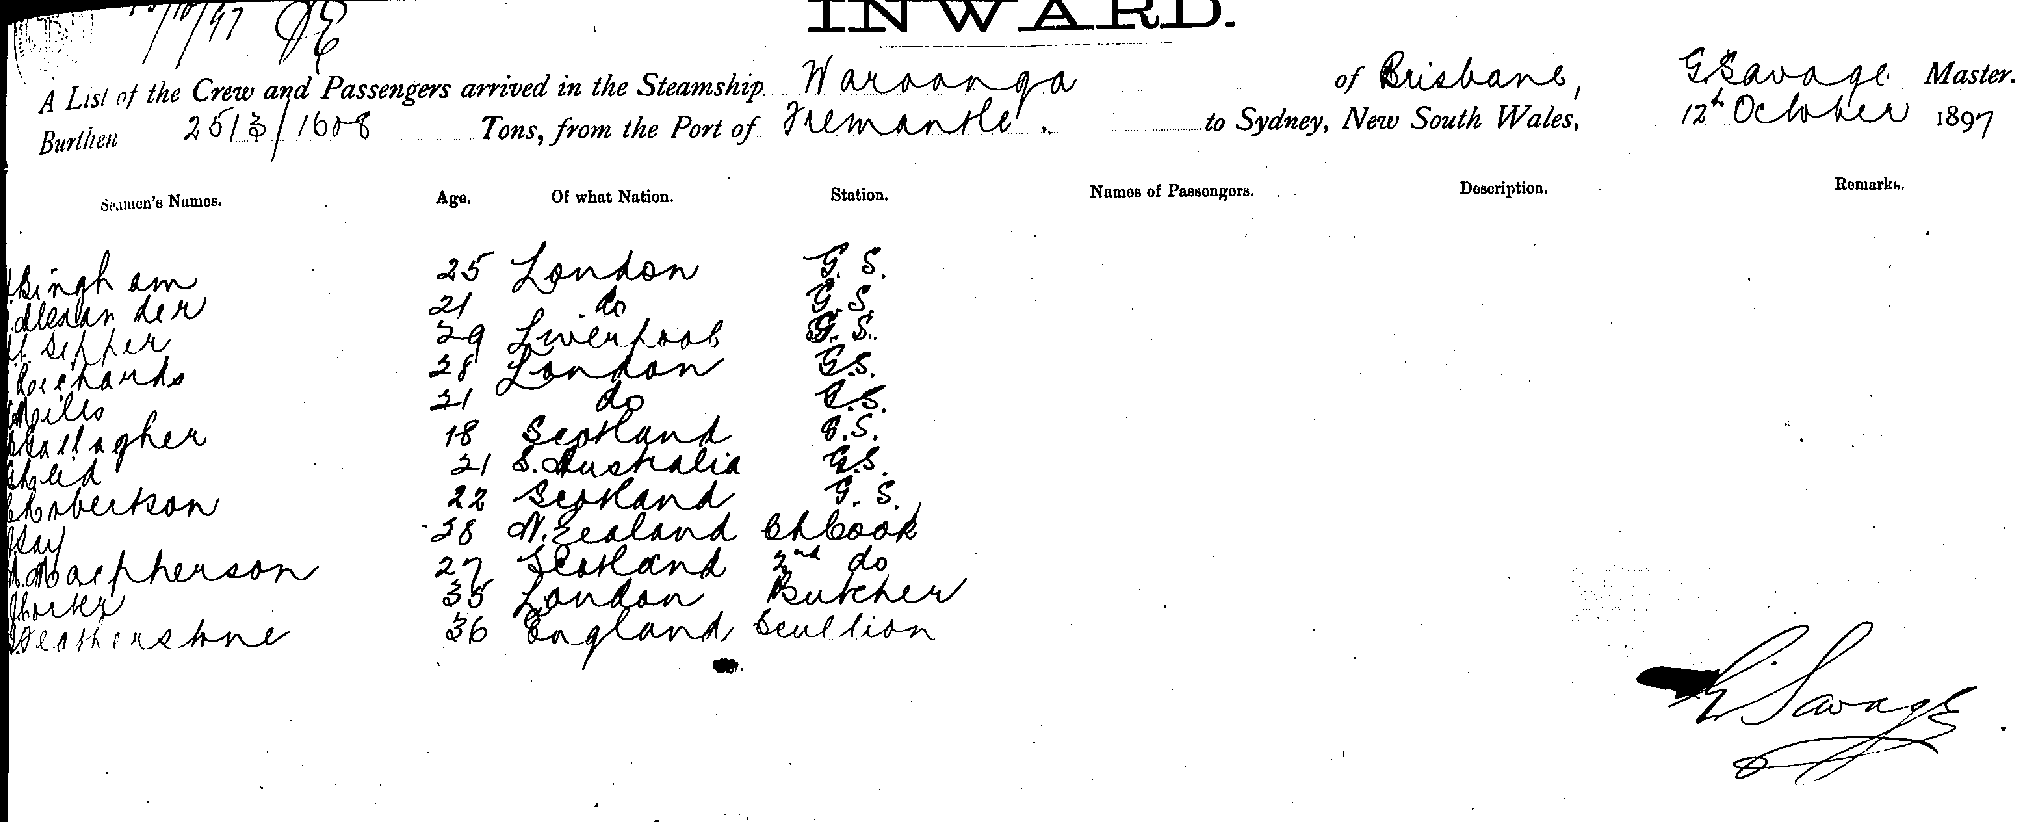 10/97
INWARD.
A List of the Crew and Passengers arrived in the Steamship Waroonga of Brisbane, G Savage Master.
Burthen 2513/1608 Tons, from the Port of Fremantle. to Sydney, New South Wales, 12th October 1897
Seamen's Names. Age. Of what Nation. Station. Names of Passengers. Description. Remarks.
Bingham 25 London G. S.
Alexander 21 do G. S.
29 Liverpool G. S.
Richards 28 London G.S.
Mills 21 do G.S.
Gallagher 18 Scotland G.S.
21 S. Australia G.S.
Robertson 22 Scotland G. S.
38 N. Zealand Ch Cook
Macpherson 27 Scotland 2nd do
35 London Butcher
Featherstone 36 England Scullion
G Savage